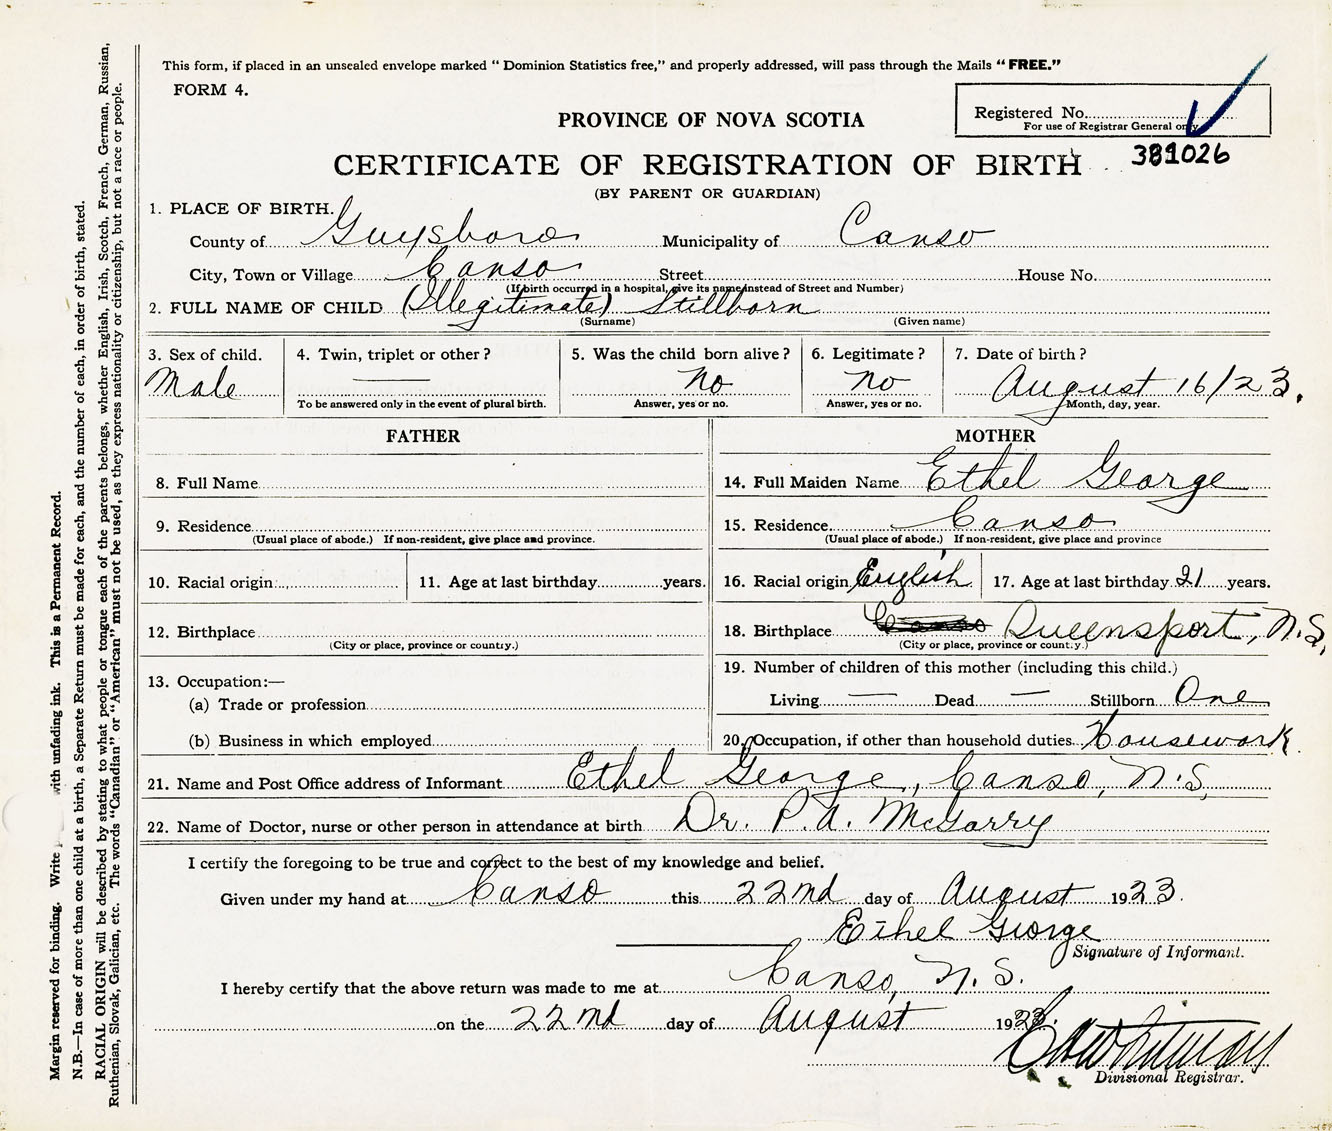 This form, if placed in an unsealed envelope marked "Dominion Statistics free," and properly addressed, will pass through the Mails "FREE."
FORM 4.
Registered No.
For use of Registrar General only
PROVINCE OF NOVA SCOTIA
CERTIFICATE OF REGISTRATION OF BIRTH 381026
(BY PARENT OR GUARDIAN)
1. PLACE OF BIRTH.
County of Guysboro Municipality of Canso
City, Town or Village Canso Street House No.
(If birth occurred in a hospital, give its name instead of Street and Number)
2. FULL NAME OF CHILD (Illegitimate) Stillborn
(Surname) (Given name)
3. Sex of child. 4. Twin, triplet or other? 5. Was the child born alive? 6. Legitimate? 7. Date of birth?
Male No No August 16/23.
To be answered only in the event of plural birth. Answer, yes or no. Answer, yes or no. Month, day, year.
FATHER
8. Full Name
9. Residence
(Usual place of abode.) If non-resident, give place and province.
10. Racial origin 11. Age at last birthday years.
12. Birthplace
(City or place, province or country.)
13. Occupation:—
(a) Trade or profession
(b) Business in which employed
MOTHER
14. Full Maiden Name Ethel George
15. Residence Canso
(Usual place of abode.) If non-resident, give place and province
16. Racial origin English 17. Age at last birthday 21 years.
18. Birthplace Canso Queensport, N.S.
(City or place, province or country.)
19. Number of children of this mother (including this child.)
Living — Dead — Stillborn One
20. Occupation, if other than household duties Housework.
21. Name and Post Office address of Informant Ethel George, Canso, N.S.
22. Name of Doctor, nurse or other person in attendance at birth Dr. P.A. McGarry
I certify the foregoing to be true and correct to the best of my knowledge and belief.
Given under my hand at Canso this 22nd day of August 1923.
Ethel George
Signature of Informant.
I hereby certify that the above return was made to me at Canso, N.S.
on the 22nd day of August 1923.
Divisional Registrar.
Margin reserved for binding. Write with unfading ink. This is a Permanent Record.
N.B.—In case of more than one child at a birth, a Separate Return must be made for each, and the number of each, in order of birth, stated.
RACIAL ORIGIN will be described by stating to what people or tongue each of the parents belongs, whether English, Irish, Scotch, French, German, Russian,
Ruthenian, Slovak, Galician, etc. The words "Canadian" or "American" must not be used, as they express nationality or citizenship, but not a race or people.